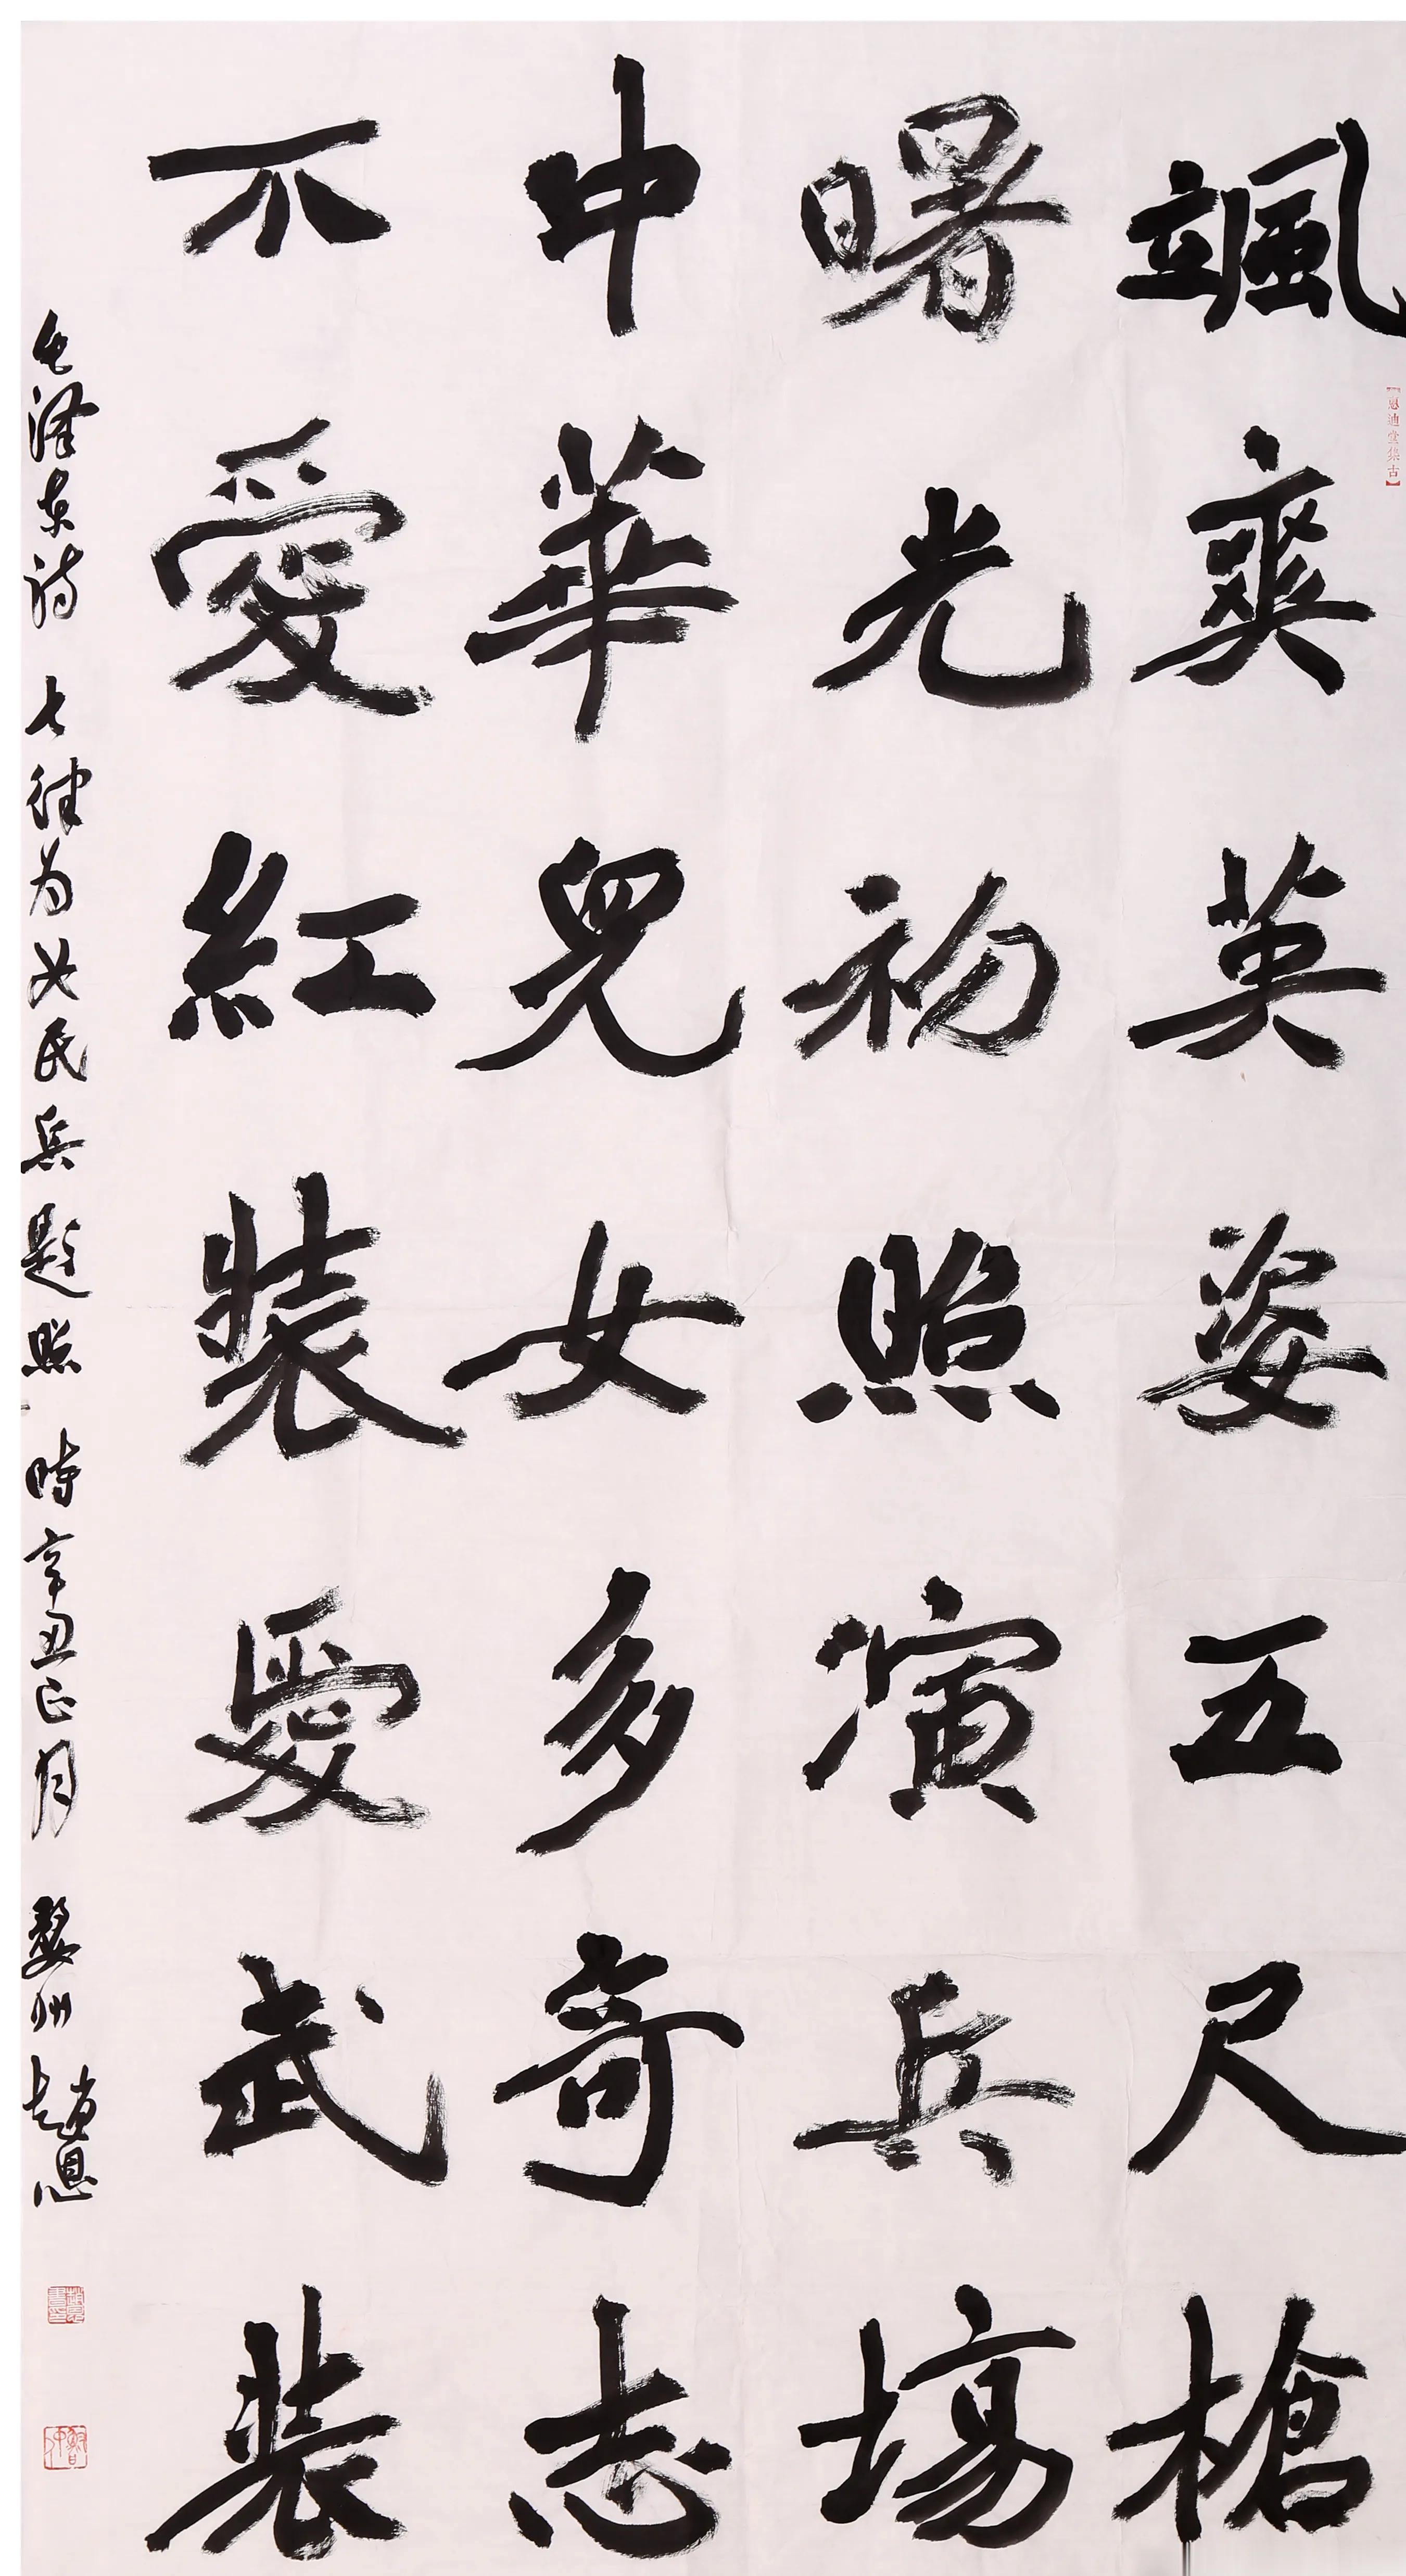 颯爽英姿五尺槍
曙光初照演兵場
中華兒女多奇志
不愛紅裝愛武裝
毛澤东詩 七律为女民兵題照 時辛丑正月 婺州趙恩
【惠迪堂集古】